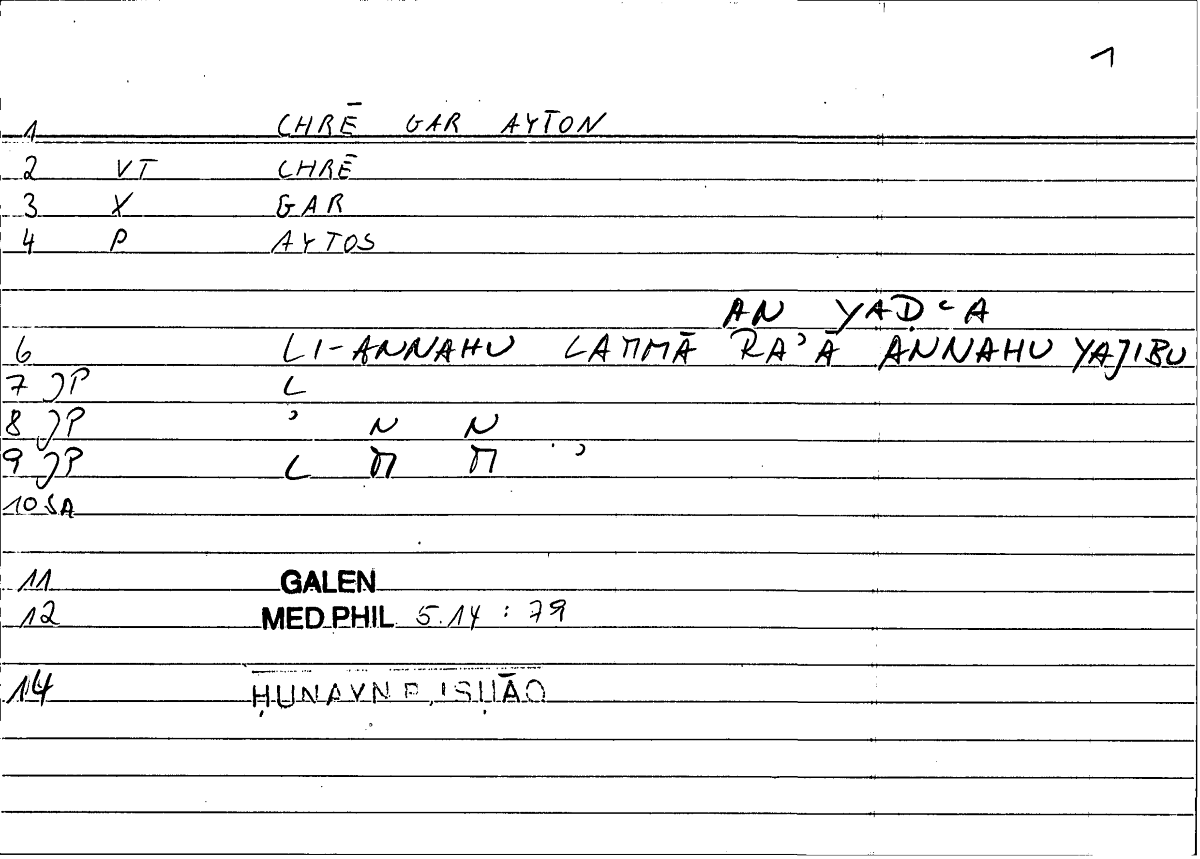 1
1 CHRĒ GAR AYTON
2 VT CHRĒ
3 X GAR
4 P AYTOS
AN YAḌʿA
6 LI-ANNAHU LAMMĀ RAʾĀ ANNAHU YAJIBU
7 JP L
8 JP ʾ N N
9 JP L M M ʾ
10 SA
11 GALEN
12 MED PHIL 5.14 : 79
14 ḤUNAYN B. ISḤĀQ